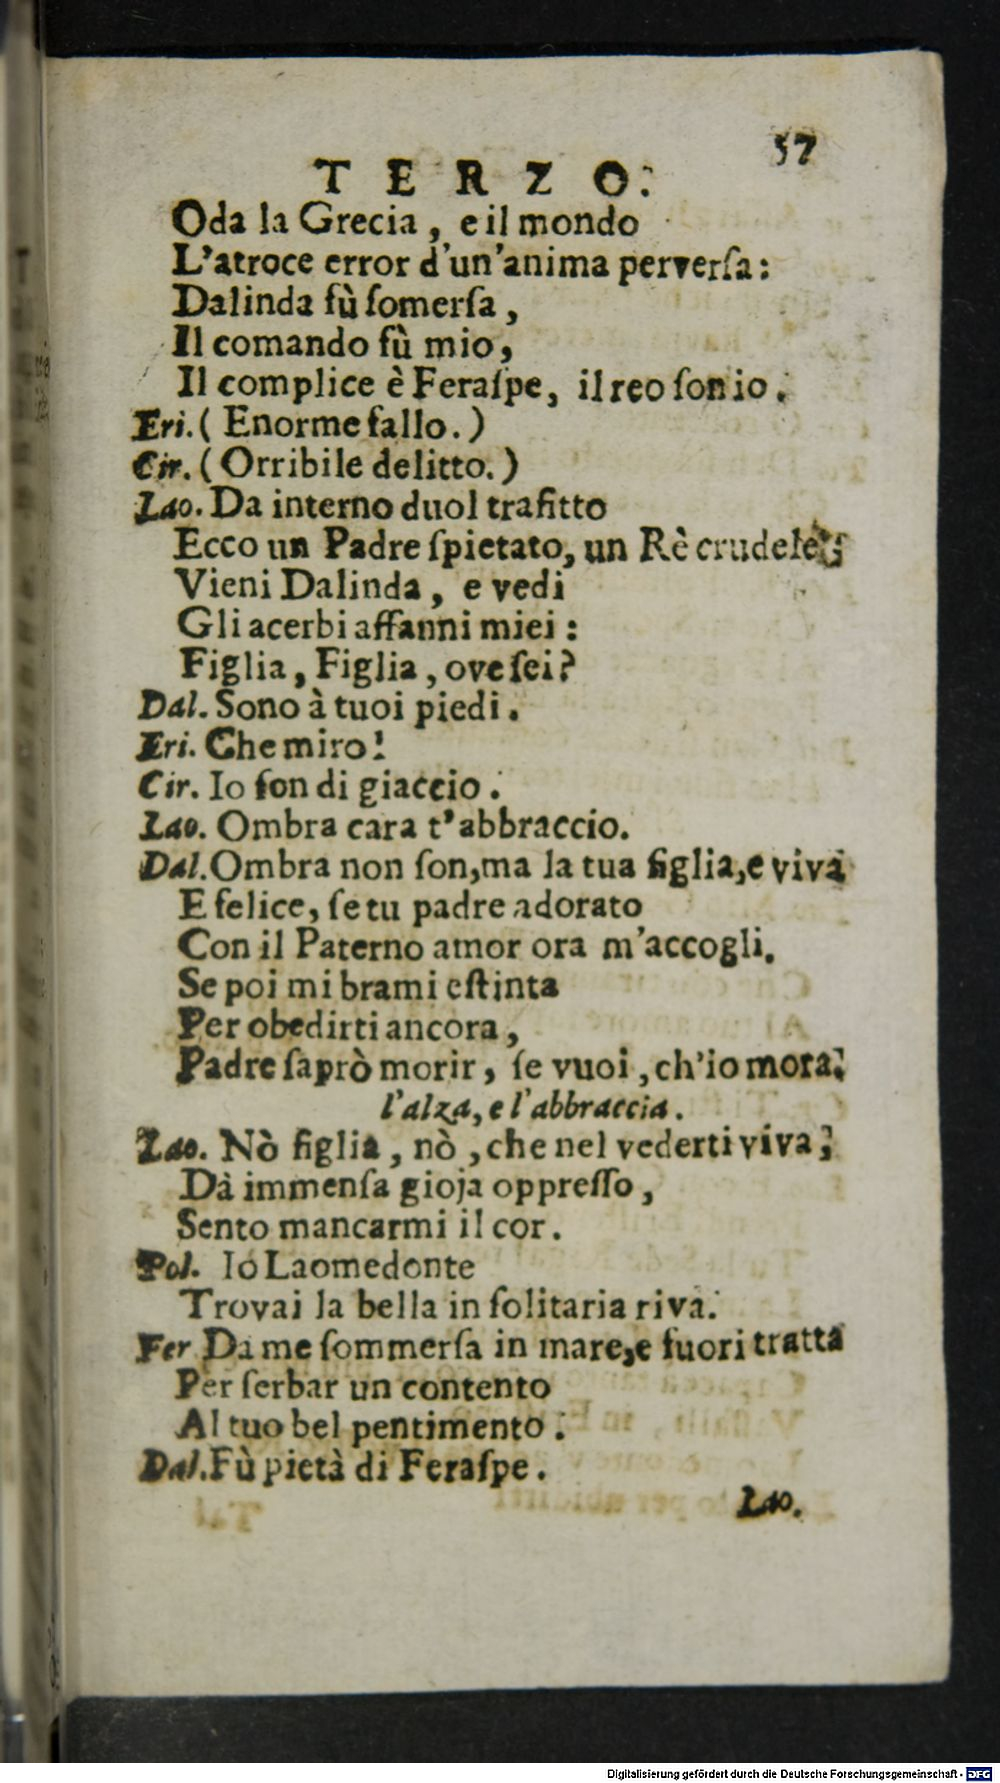 57
TERZO.
Oda la Grecia, e il mondo
L'atroce error d'un'anima perverſa:
Dalinda fù ſomerſa,
Il comando fù mio,
Il complice è Feraſpe, il reo ſon io.
Eri. (Enorme fallo.)
Cir. (Orribile delitto.)
Lao. Da interno duol trafitto
Ecco un Padre ſpietato, un Rè crudele;
Vieni Dalinda, e vedi
Gli acerbi affanni miei:
Figlia, Figlia, ove ſei?
Dal. Sono à tuoi piedi.
Eri. Che miro!
Cir. Io ſon di giaccio.
Lao. Ombra cara t'abbraccio.
Dal. Ombra non ſon, ma la tua figlia, e viva
E felice, ſe tu padre adorato
Con il Paterno amor ora m'accogli.
Se poi mi brami eſtinta
Per obedirti ancora,
Padre ſaprò morir, ſe vuoi, ch'io mora.
l'alza, e l'abbraccia.
Lao. Nò figlia, nò, che nel vederti viva,
Dà immenſa gioja oppreſſo,
Sento mancarmi il cor.
Pol. Io Laomedonte
Trovai la bella in ſolitaria riva.
Fer Da me ſommerſa in mare, e fuori tratta
Per ſerbar un contento
Al tuo bel pentimento.
Dal. Fù pietà di Feraſpe.
Lao.
Digitalisierung gefördert durch die Deutsche Forschungsgemeinschaft - DFG